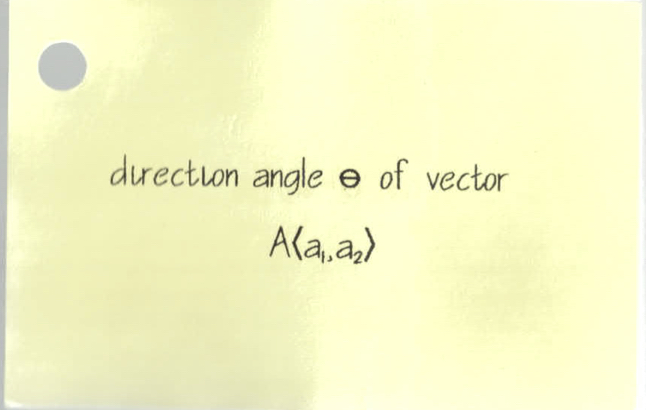 direction angle ɵ of vector
A⟨a₁,a₂⟩